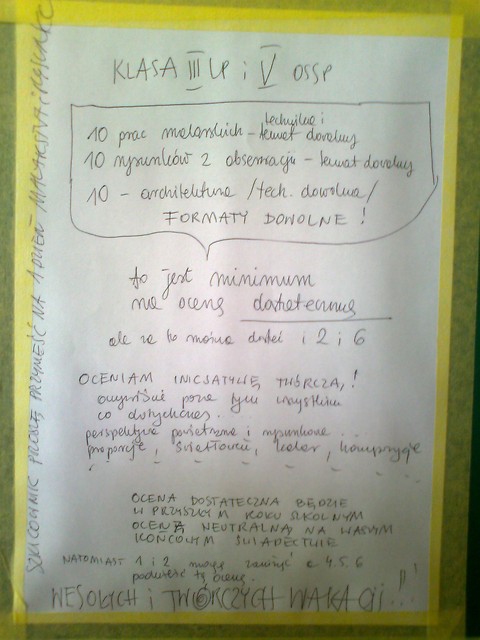 KLASA III LP i V OSSP
10 prac malarskich - technika i temat dowolny
10 rysunków z obserwacji - temat dowolny
10 - architektura /tech. dowolna/
FORMATY DOWOLNE !
to jest minimum
na ocenę dostateczną
ale za to można dostać i 2 i 6
OCENIAM INICJATYWĘ TWÓRCZĄ !
oczywiście poza tym wszystkim
co dotychczas.
perspektywa powietrzna i rysunkowa ...
proporcje, światłocień, kolor, kompozycję
OCENA DOSTATECZNA BĘDZIE
W PRZYSZŁYM ROKU SZKOLNYM
OCENĄ NEUTRALNĄ NA WASZYM
KOŃCOWYM ŚWIADECTWIE
NATOMIAST 1 i 2 mogą zaniżyć a 4.5.6
podnieść tę ocenę.
WESOŁYCH i TWÓRCZYCH WAKACJI !!!
SZKICOWNIK PROSZĘ PRZYNIEŚĆ NA 1 DZIEŃ MALARSTWA i RYSUNKU